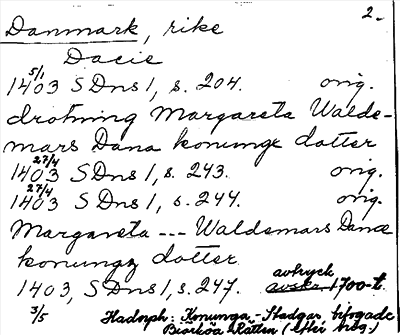 2.
Danmark, rike
Dacie
5/1
1403 SDns 1, s. 204. orig.
drotning Margareta Walde-
mars Dana konungx dotter
27/4
1403 SDns 1, s. 243. orig.
27/4
1403 SDns 1, s. 244. orig.
Margareta --- Waldemars Danæ
konungx dotter
avtryck
1403, SDns 1, s. 247. avskr. 1700-t.
3/5
Hadorph: Konunga-Stadgar, bifogade
Biärköa Rätten (efter hdg.)